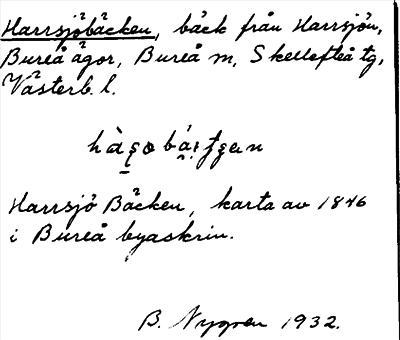 Harrsjöbäcken, bäck från Harrsjön,
Bureå ägor, Bureå sn, Skellefteå tg,
Västerb. l.
Harrsjö Bäcken, karta av 1846
i Bureå byaskrin.
B. Nygren 1932.